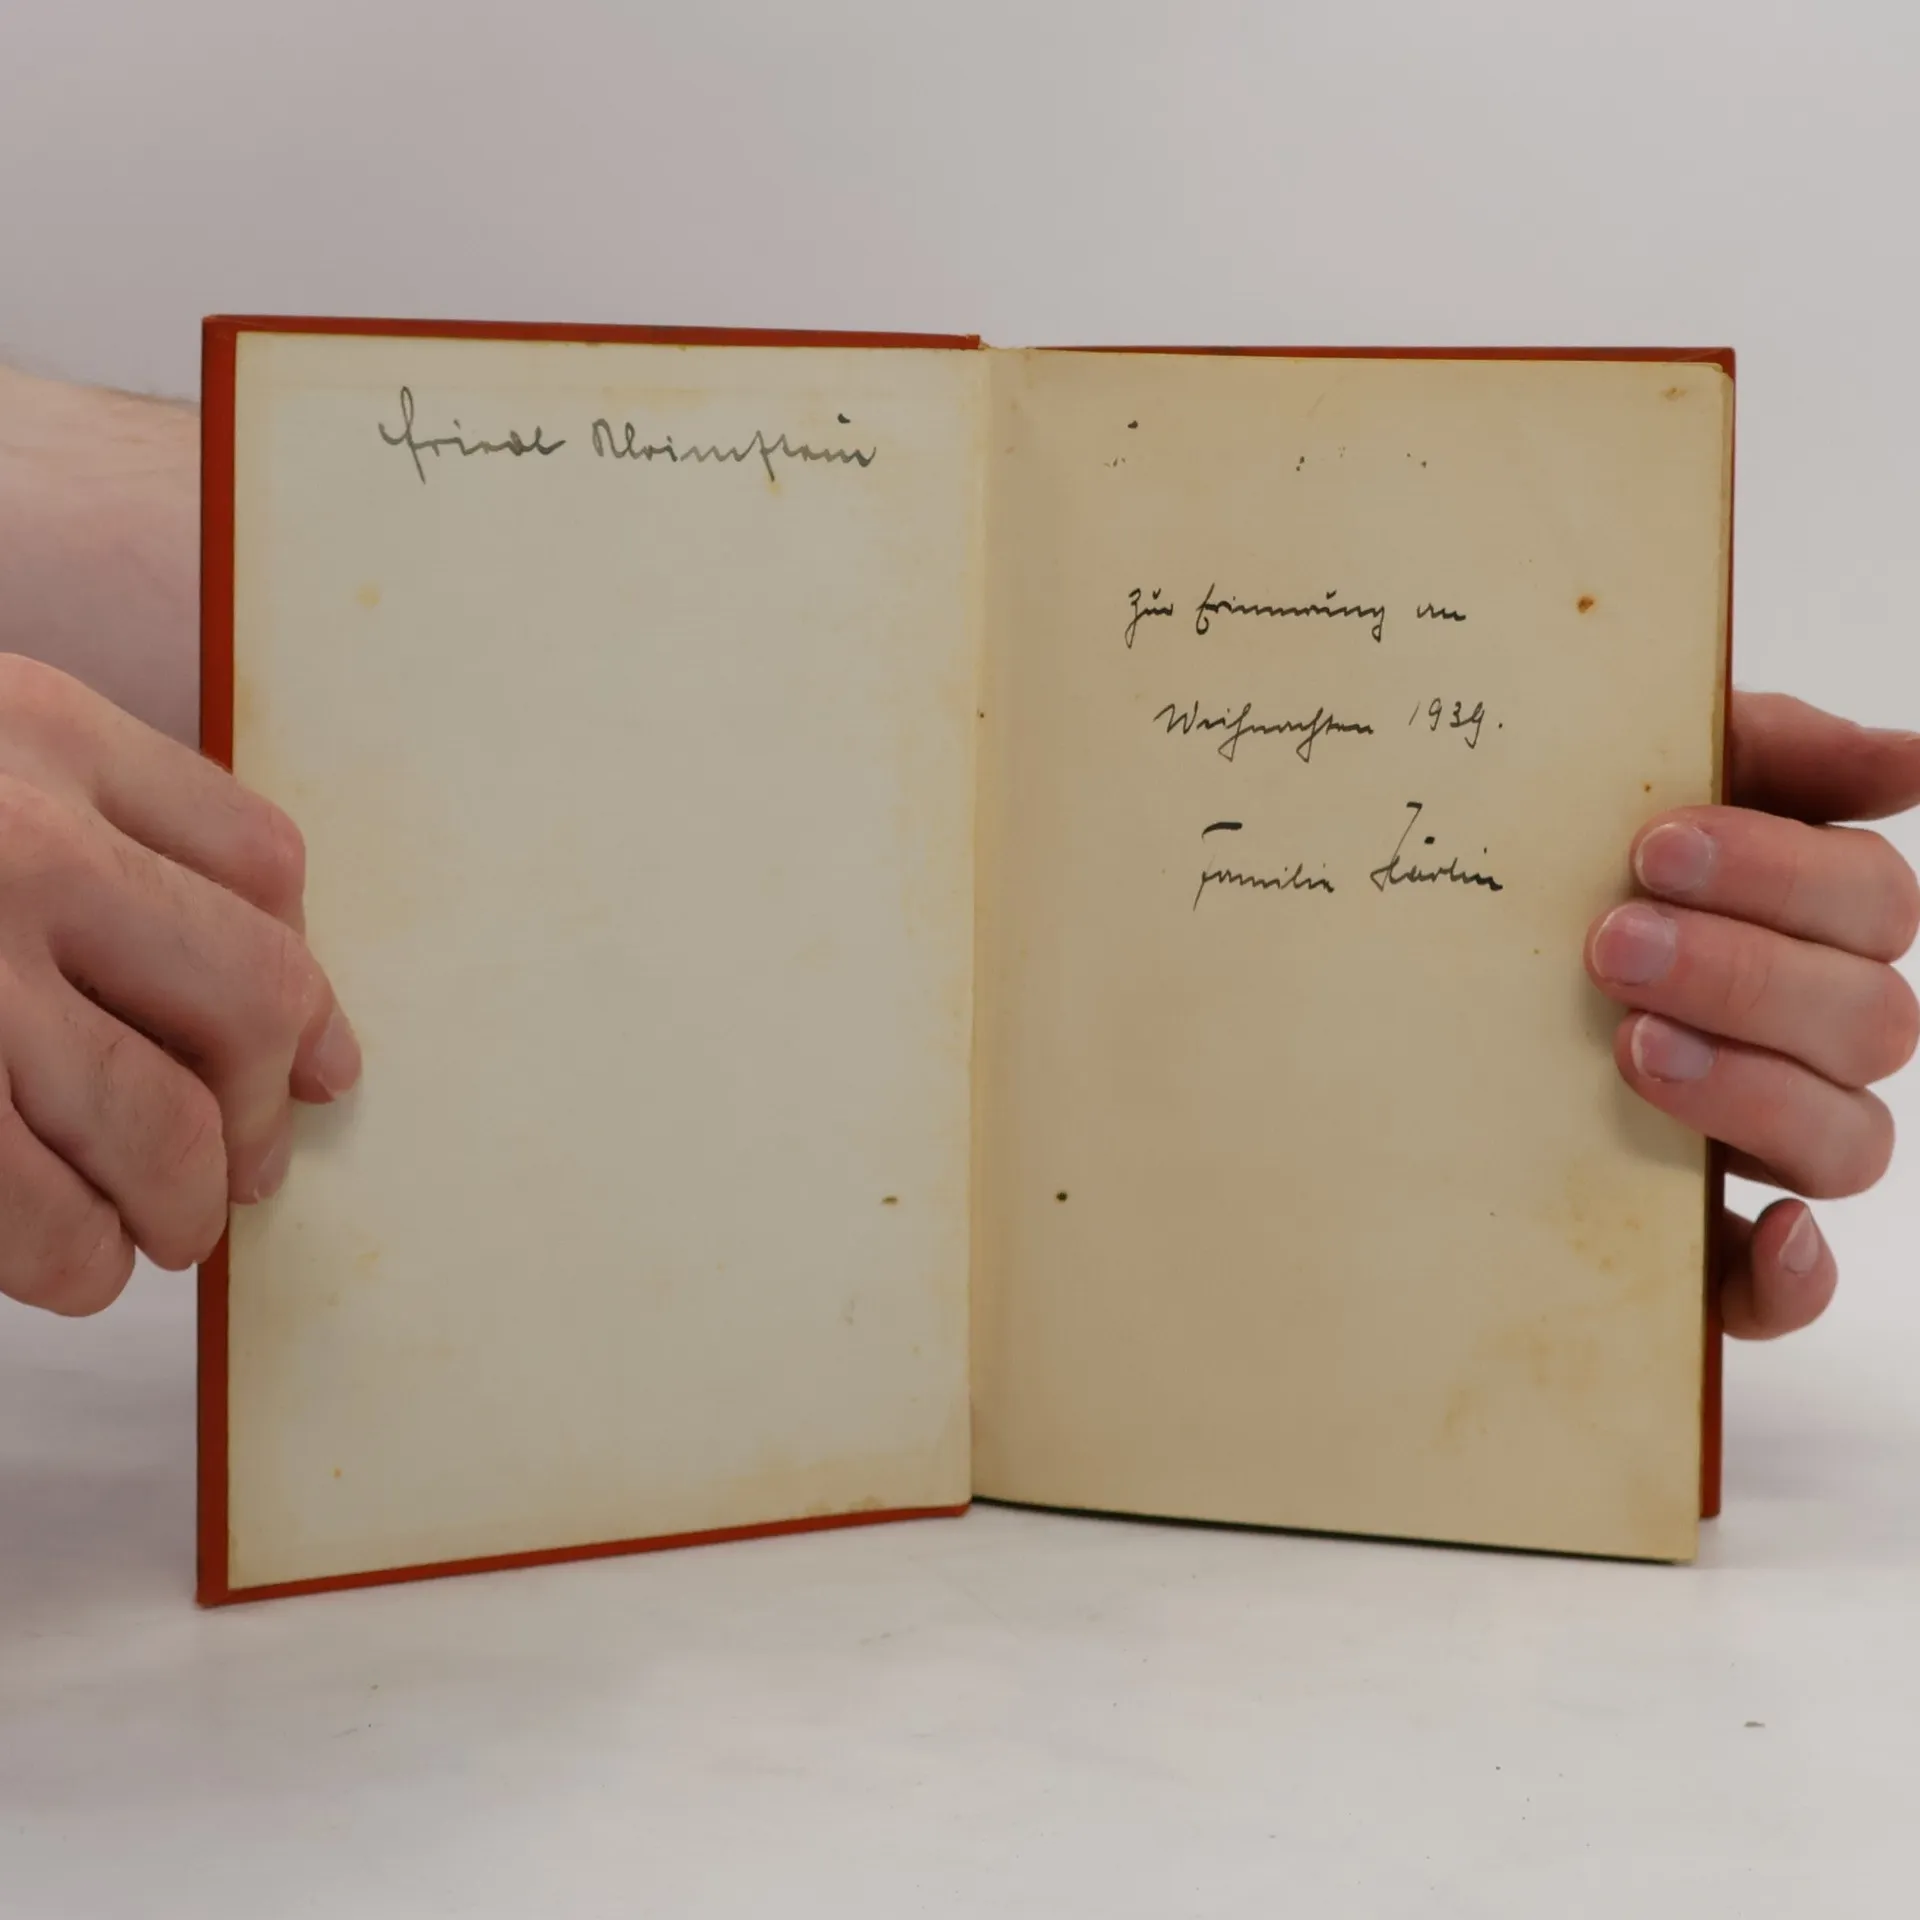 Friedl Kleinstein
Zur Erinnerung an
Weihnachten 1939.
Familie